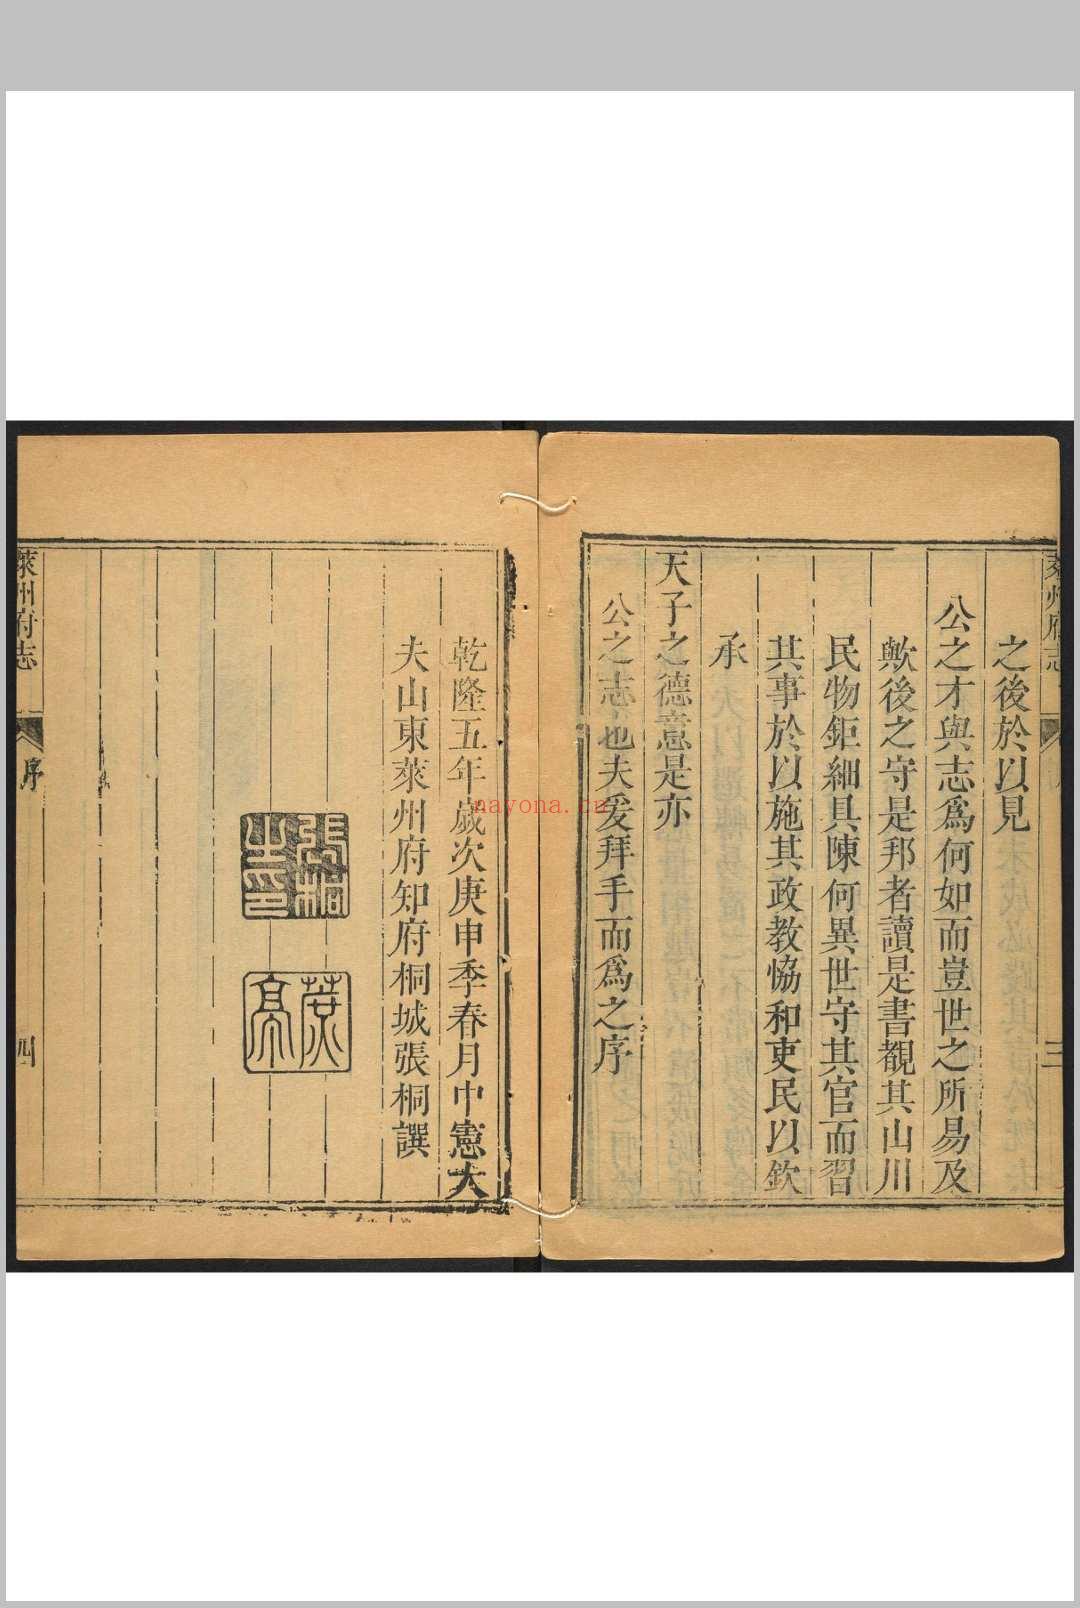 萊州府志
三
之後於以見
公之才與志為何如而豈世之所易及
歟後之守是邦者讀是書覩其山川
民物鉅細具陳何異世守其官而習
其事於以施其政教恊和吏民以欽
承
天子之德意是亦
公之志也夫爰拜手而為之序
乾隆五年歲次庚申季春月中憲大
夫山東萊州府知府桐城張桐譔
張桐之印
蔗亭
萊州府志
序
四
nayona.cn